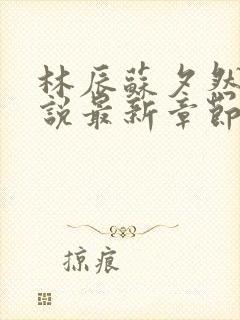 林辰蘇夕然
說最新章節
掠痕